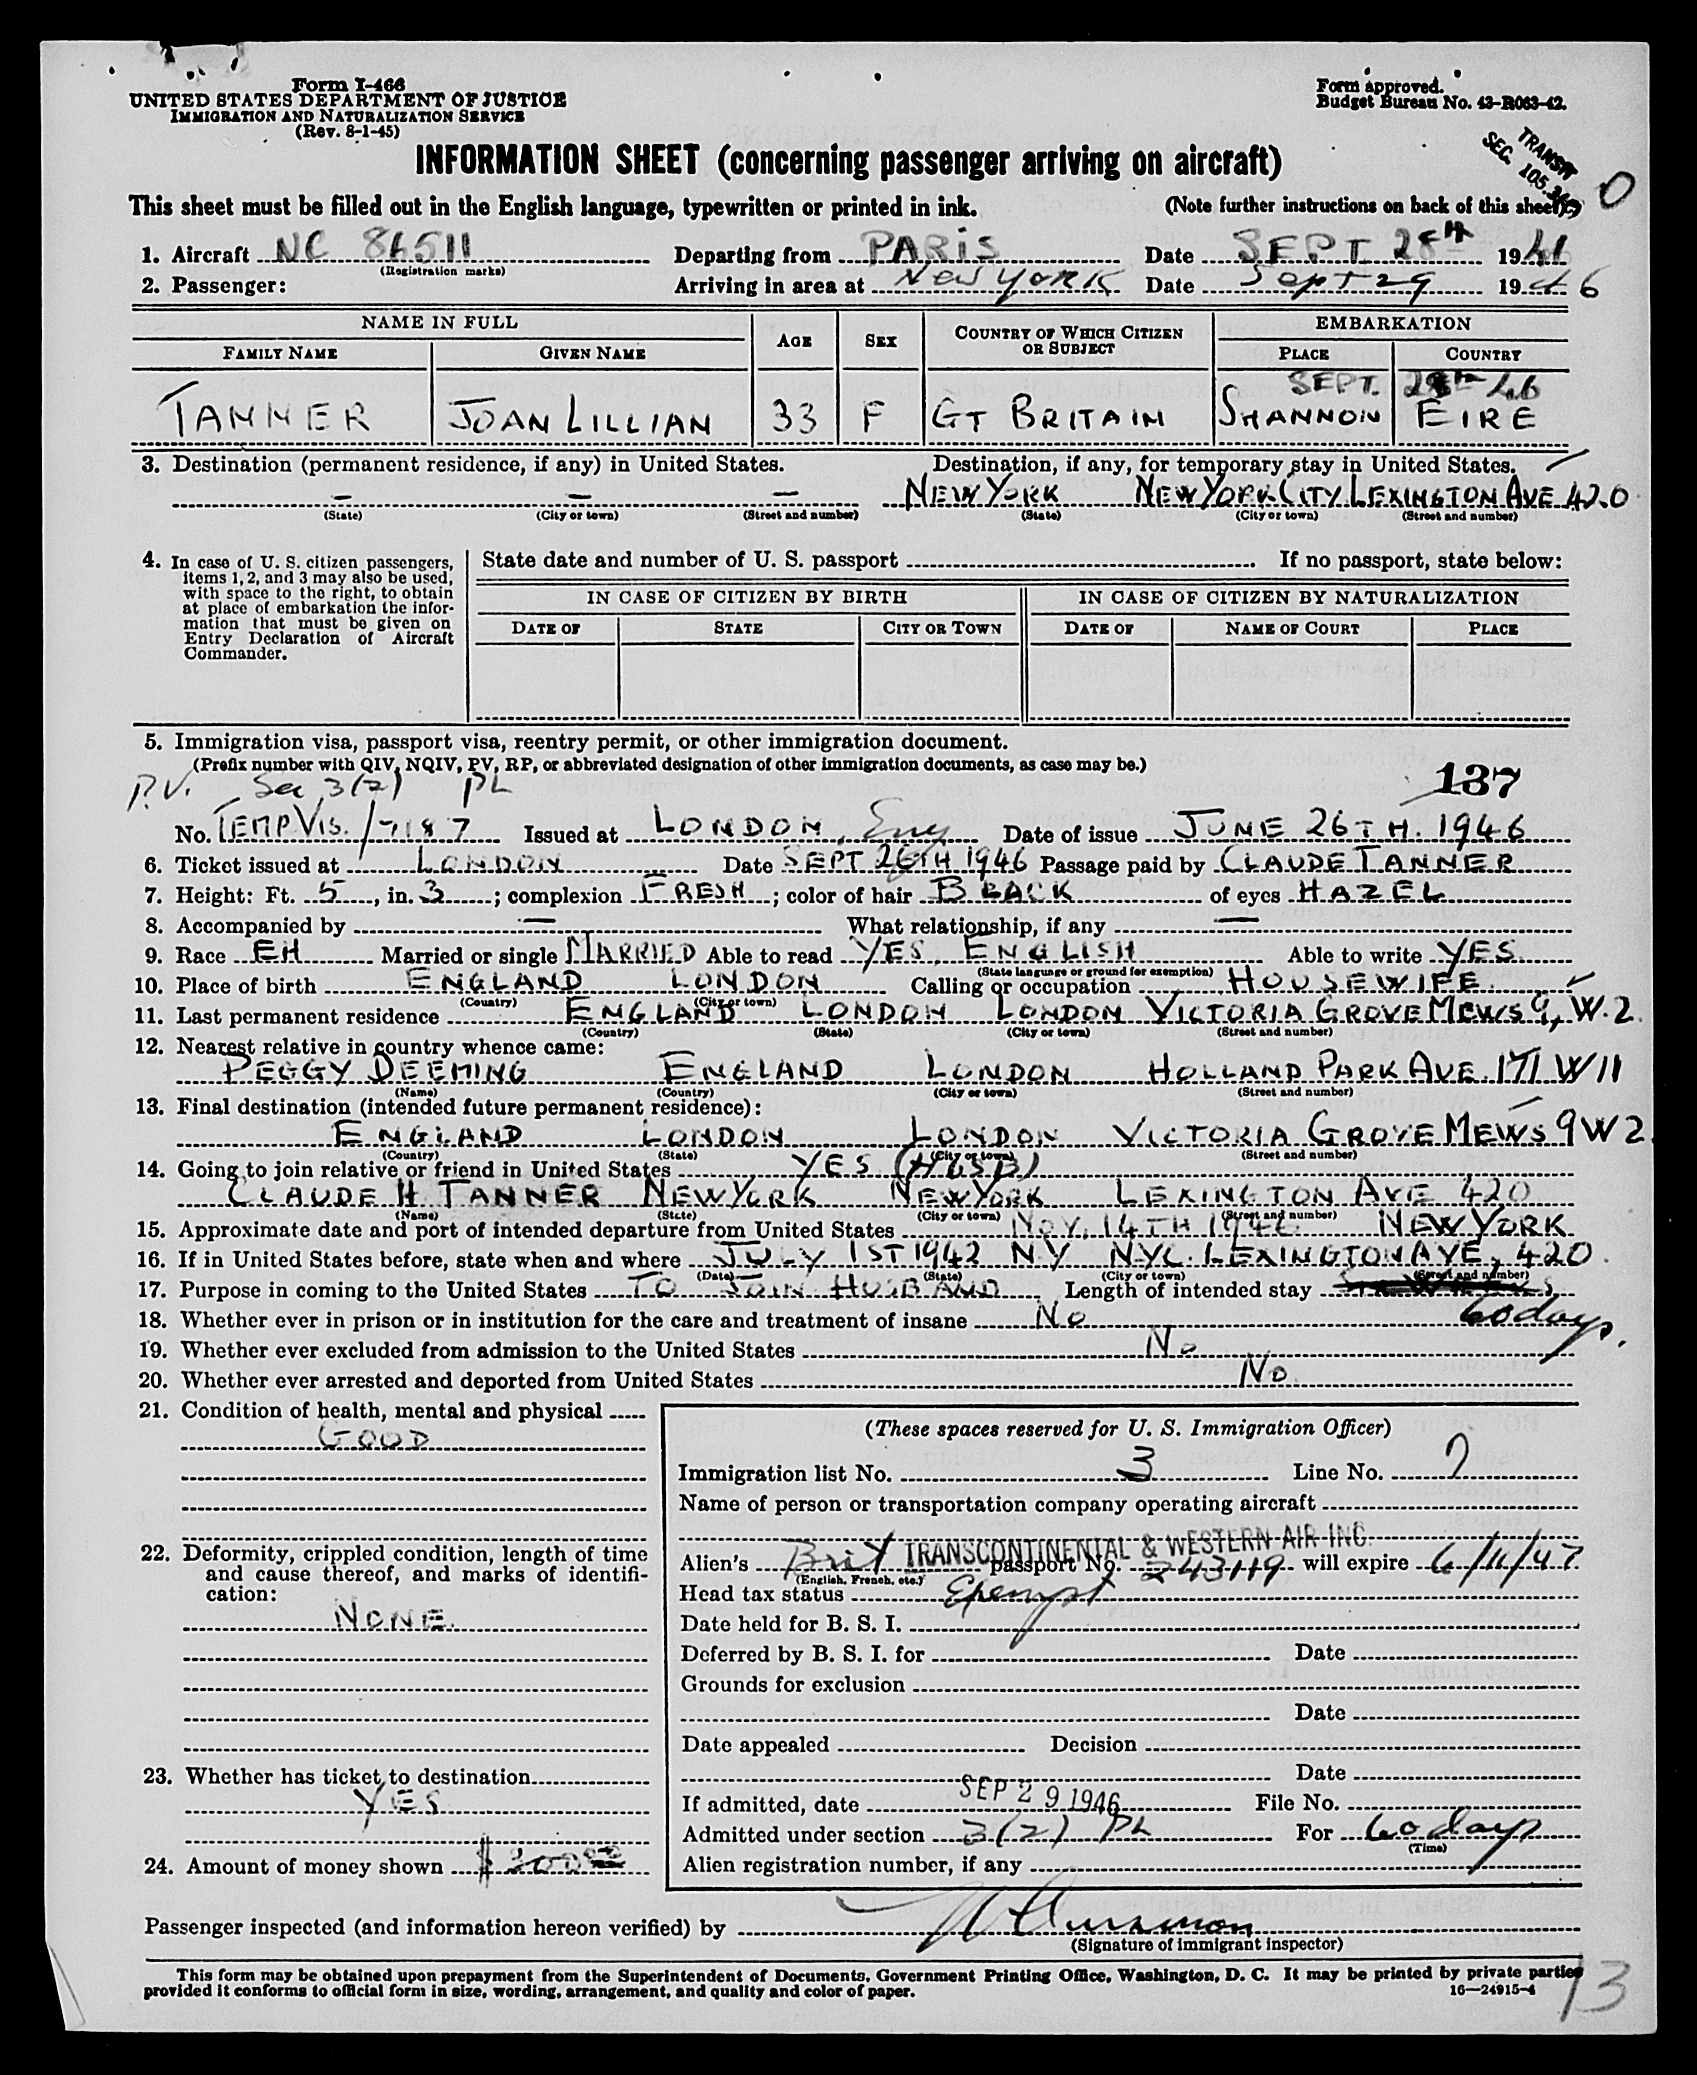 Form I-466
UNITED STATES DEPARTMENT OF JUSTICE
IMMIGRATION AND NATURALIZATION SERVICE
(Rev. 8-1-45)
Form approved.
Budget Bureau No. 43-R063-42.
TRANSIT
SEC. 105.
0
INFORMATION SHEET (concerning passenger arriving on aircraft)
This sheet must be filled out in the English language, typewritten or printed in ink. (Note further instructions on back of this sheet.)
1. Aircraft NC 86511 Departing from PARIS Date SEPT 28th 1946
(Registration marks)
2. Passenger: Arriving in area at New York Date Sept 29 1946
NAME IN FULL AGE SEX COUNTRY OF WHICH CITIZEN OR SUBJECT EMBARKATION
FAMILY NAME GIVEN NAME PLACE COUNTRY
SEPT. 28th 46
TANNER JOAN LILLIAN 33 F GT BRITAIN SHANNON EIRE
3. Destination (permanent residence, if any) in United States. Destination, if any, for temporary stay in United States.
— — — NEW YORK NEW YORK CITY LEXINGTON AVE 420
(State) (City or town) (Street and number) (State) (City or town) (Street and number)
4. In case of U. S. citizen passengers, items 1, 2, and 3 may also be used, with space to the right, to obtain at place of embarkation the information that must be given on Entry Declaration of Aircraft Commander.
State date and number of U. S. passport If no passport, state below:
IN CASE OF CITIZEN BY BIRTH IN CASE OF CITIZEN BY NATURALIZATION
DATE OF STATE CITY OR TOWN DATE OF NAME OF COURT PLACE
5. Immigration visa, passport visa, reentry permit, or other immigration document.
(Prefix number with QIV, NQIV, PV, RP, or abbreviated designation of other immigration documents, as case may be.)
P.V. Sec 3(2) PL 137
No. TEMP VIS. / 7187 Issued at LONDON, Eng Date of issue JUNE 26TH. 1946
6. Ticket issued at LONDON Date SEPT 26TH 1946 Passage paid by CLAUDE TANNER
7. Height: Ft. 5, in. 3; complexion FRESH; color of hair BLACK of eyes HAZEL
8. Accompanied by — What relationship, if any —
9. Race EH Married or single MARRIED Able to read YES, ENGLISH Able to write YES
(State language or ground for exemption)
10. Place of birth ENGLAND LONDON Calling or occupation HOUSEWIFE
(Country) (City or town)
11. Last permanent residence ENGLAND LONDON LONDON VICTORIA GROVE MEWS 9, W.2.
(Country) (State) (City or town) (Street and number)
12. Nearest relative in country whence came:
PEGGY DEEMING ENGLAND LONDON HOLLAND PARK AVE. 171 W11
(Name) (Country) (City or town) (Street and number)
13. Final destination (intended future permanent residence):
ENGLAND LONDON LONDON VICTORIA GROVE MEWS 9 W2.
(Country) (State) (City or town) (Street and number)
14. Going to join relative or friend in United States YES (HUSB)
CLAUDE H TANNER NEW YORK NEW YORK LEXINGTON AVE 420
(Name) (State) (City or town) (Street and number)
15. Approximate date and port of intended departure from United States NOV. 14TH 1946 NEW YORK
16. If in United States before, state when and where JULY 1ST 1942 N.Y N.Y.C. LEXINGTON AVE, 420.
(Date) (State) (City or town) (Street and number)
17. Purpose in coming to the United States TO JOIN HUSBAND Length of intended stay
60 days.
18. Whether ever in prison or in institution for the care and treatment of insane No
19. Whether ever excluded from admission to the United States No
20. Whether ever arrested and deported from United States No
21. Condition of health, mental and physical
GOOD
22. Deformity, crippled condition, length of time and cause thereof, and marks of identification:
NONE.
23. Whether has ticket to destination
YES
24. Amount of money shown $ 300
(These spaces reserved for U. S. Immigration Officer)
Immigration list No. 3 Line No. 7
Name of person or transportation company operating aircraft
TRANSCONTINENTAL & WESTERN AIR INC.
Alien's Brit passport No. 243119 will expire 6/11/47
(English, French, etc.)
Head tax status Exempt
Date held for B. S. I.
Deferred by B. S. I. for Date
Grounds for exclusion
Date
Date appealed Decision
Date
If admitted, date SEP 29 1946 File No.
Admitted under section 3(2) PL For 60 days
(Time)
Alien registration number, if any
Passenger inspected (and information hereon verified) by
(Signature of immigrant inspector)
This form may be obtained upon prepayment from the Superintendent of Documents, Government Printing Office, Washington, D. C. It may be printed by private parties
provided it conforms to official form in size, wording, arrangement, and quality and color of paper. 16—24915-4
13